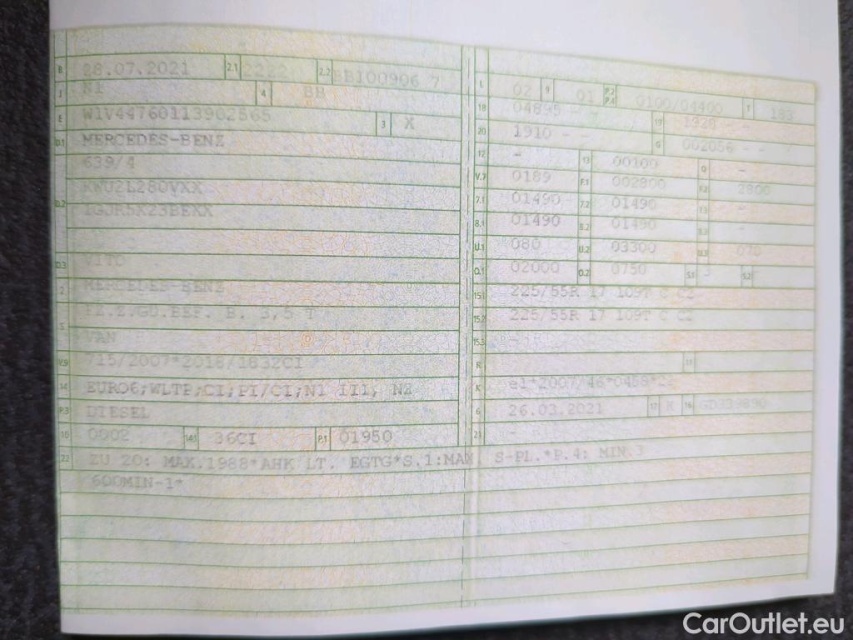 B 28.07.2021 2.1 2222 2.2
J N1 4 BB
E W1V44760113902565 3 X
D.1 MERCEDES-BENZ
639/4
D.2 KWU2L280VXX
D.3 VITO
2 MERCEDES-BENZ
FZ.Z.GÜ.BEF. B. 3,5 T
5 VAN
V.9 715/2007*2018/1832CI
14 EURO6;WLTP;CI;PI/CI;N1 III, N2
P.3 DIESEL
10 0002 14.1 36CI P.1 01950
L 02 9 01 P.2 P.4 0100/04400 T 183
18 04895 - - 19 1928 - -
20 1910 - - G 002056 - -
12 - 13 00100 Q -
V.7 0189 F.1 002800 F.2 2800
7.1 01490 7.2 01490 7.3 -
8.1 01490 8.2 01490 8.3 -
U.1 080 U.2 03300 U.3 070
O.1 02000 O.2 0750 S.1 3 S.2 -
15.1 225/55R 17 109T C C2
15.2 225/55R 17 109T C C2
15.3 -
R
K e1*2007/46*0458*
6 26.03.2021 17 K 16
21 -
22 ZU 20: MAX.1988*AHK LT. EGTG*S.1:MAX. S-PL.*P.4: MIN.3
600MIN-1*
CarOutlet.eu